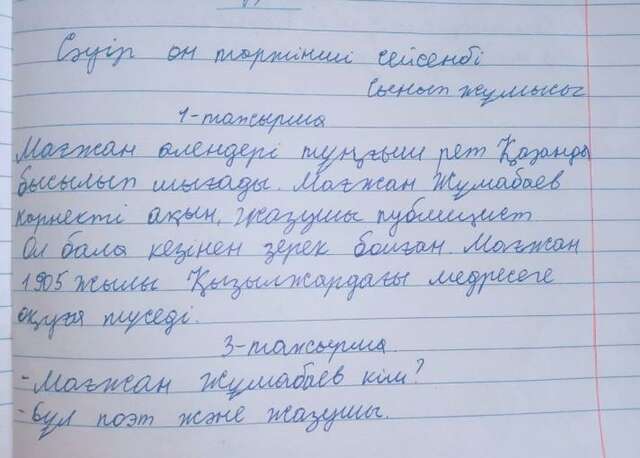 Сәуір он төртінші сейсенбі
Сынып жұмысы
1-тапсырма
Мағжан өлендері тұңғыш рет Қазанда
бысылып шығады. Мағжан Жұмабаев
көрнекті ақын, жазушы публицист
Ол бала кезінен зерек болған. Мағжан
1905 жылы Қызылжардағы медресеге
оқуға түседі.
3-тапсырма
- Мағжан Жұмабаев кім?
- Бұл поэт және жазушы.